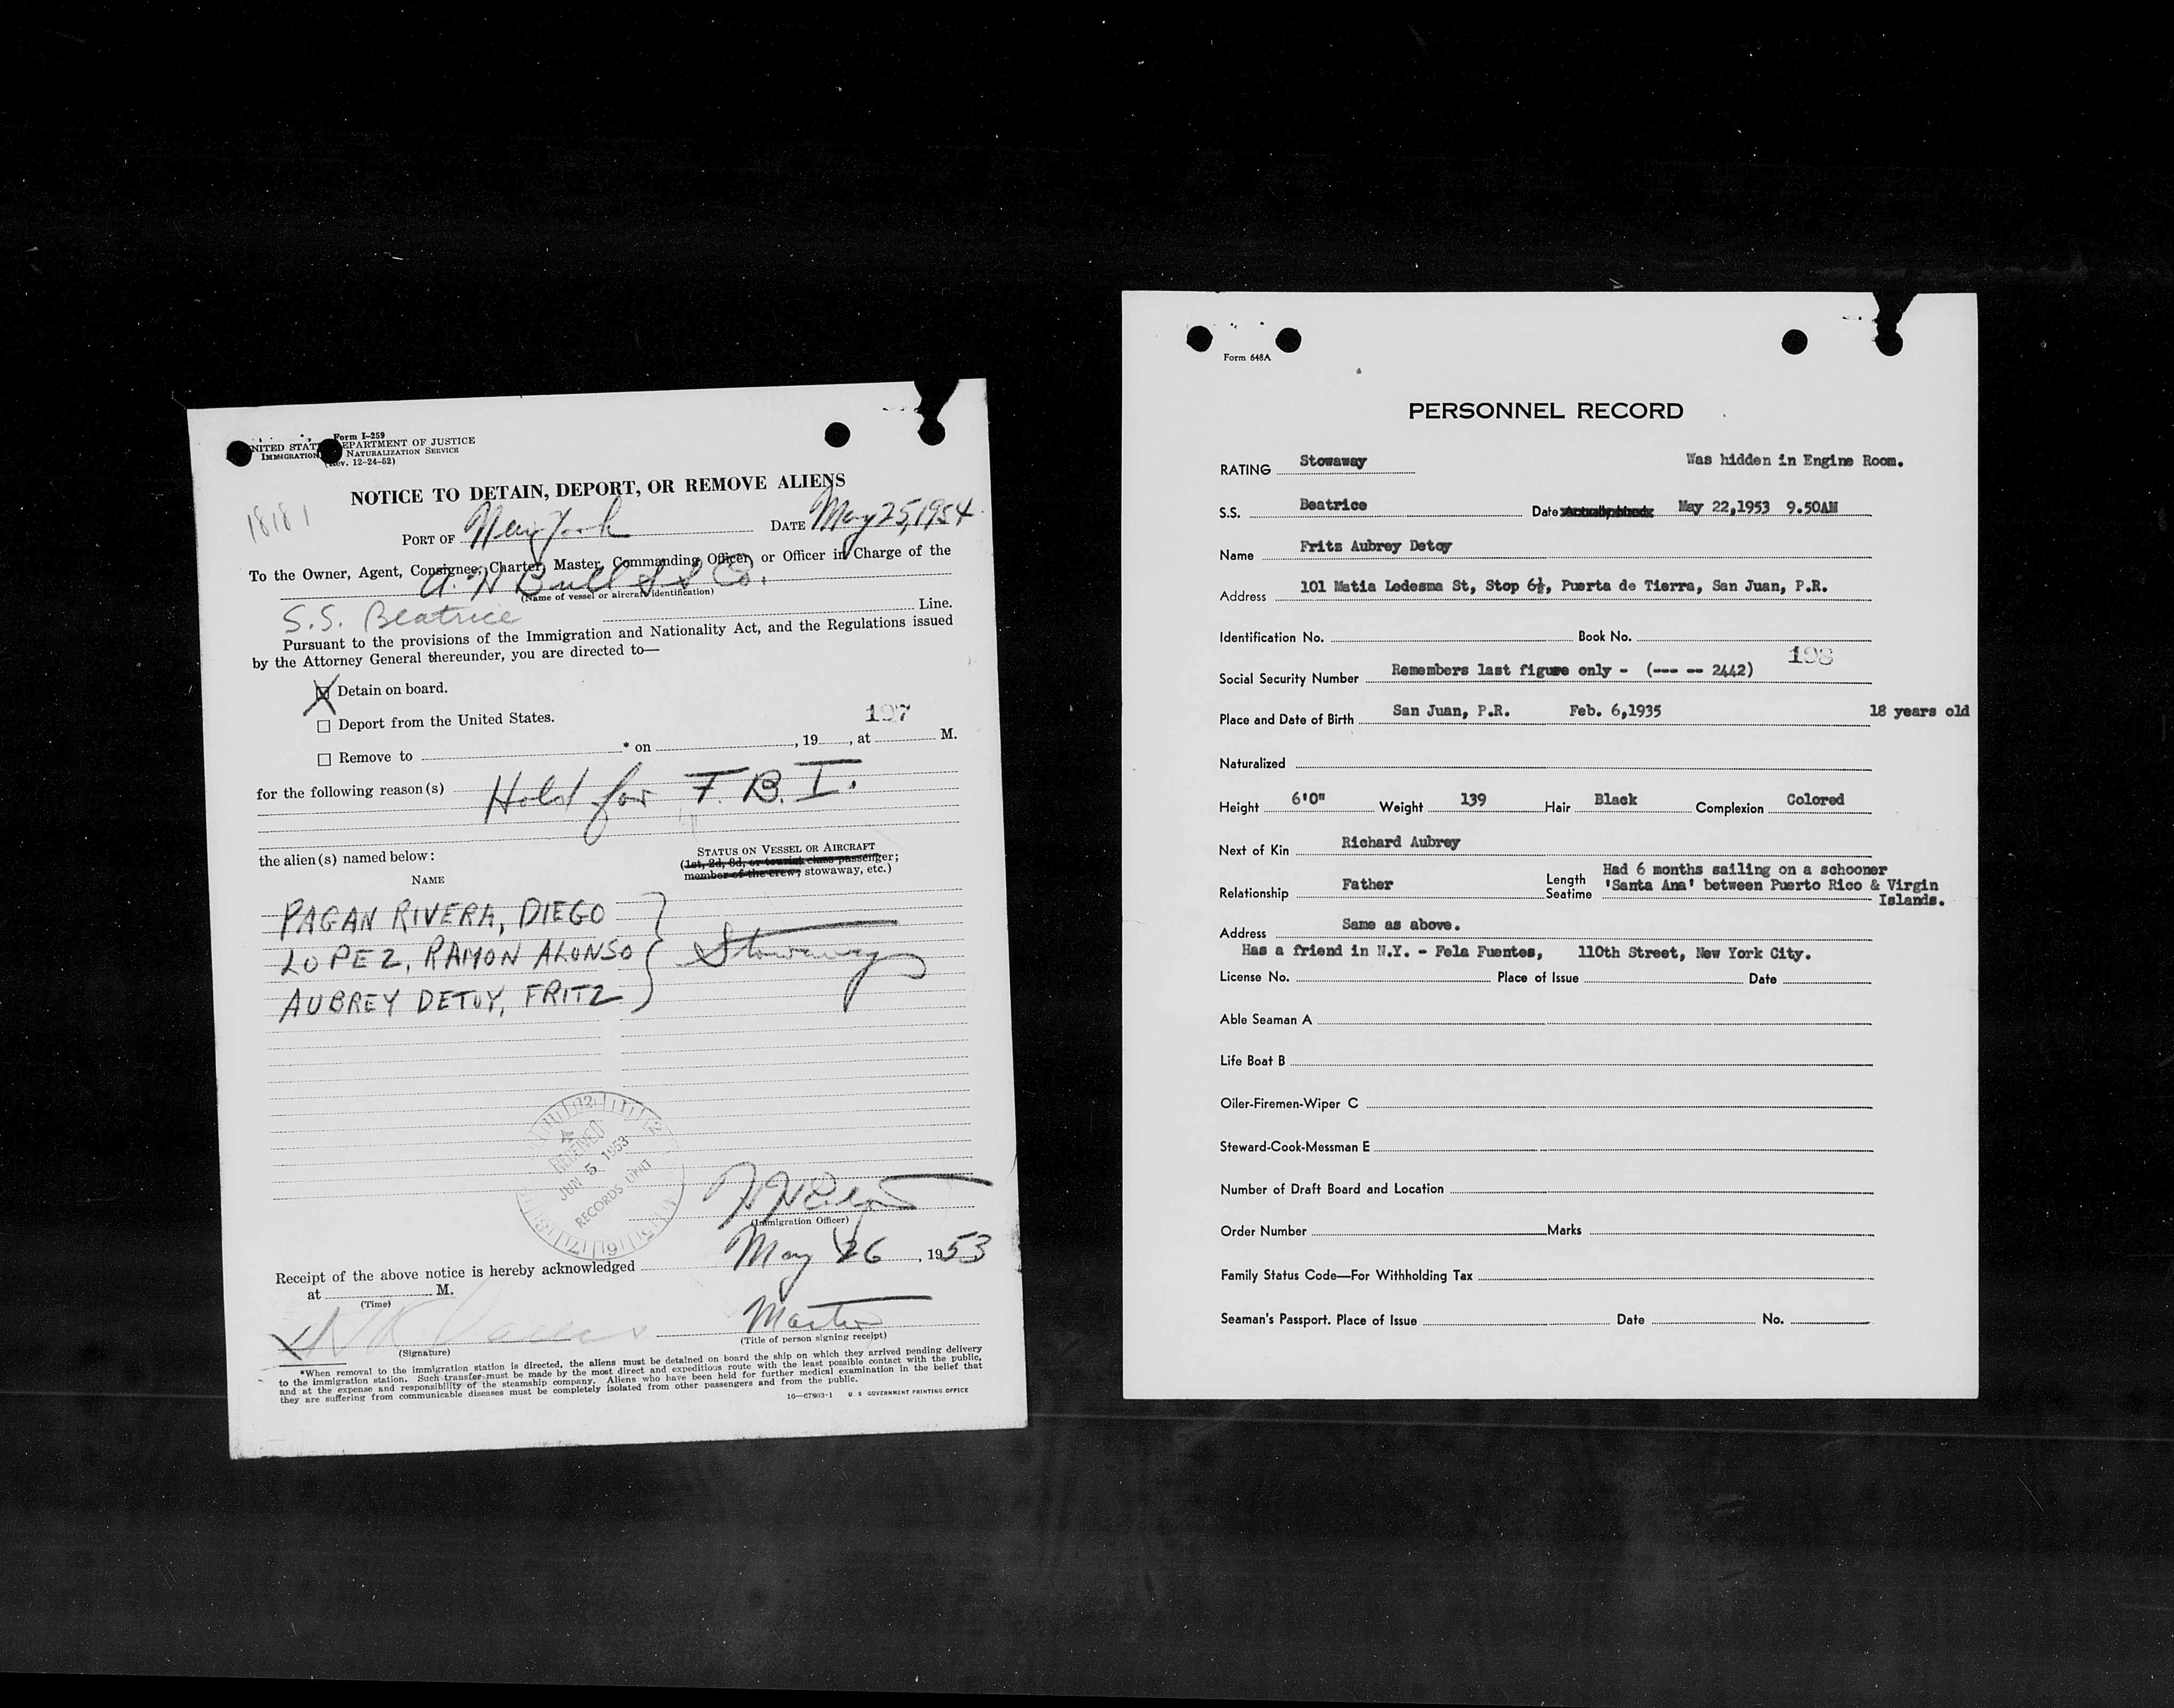 Form I-259
UNITED STATES DEPARTMENT OF JUSTICE
IMMIGRATION NATURALIZATION SERVICE
(Rev. 12-24-52)
NOTICE TO DETAIN, DEPORT, OR REMOVE ALIENS
18181
PORT OF New York DATE May 25, 1954
To the Owner, Agent, Consignee, Charter, Master, Commanding Officer, or Officer in Charge of the
A. H Bull S S Co.
(Name of vessel or aircraft identification)
S.S. Beatrice Line.
Pursuant to the provisions of the Immigration and Nationality Act, and the Regulations issued
by the Attorney General thereunder, you are directed to—
Detain on board.
Deport from the United States.
197
Remove to * on , 19 , at M.
for the following reason(s) Hold for F.B.I.
the alien(s) named below:
STATUS ON VESSEL OR AIRCRAFT
(1st, 2d, 3d, or tourist class passenger;
member of the crew; stowaway, etc.)
NAME
PAGAN RIVERA, DIEGO
LOPEZ, RAMON ALONSO Stowaway
AUBREY DETOY, FRITZ
RECEIVED
JUN 5 1953
RECORDS UNIT
(Immigration Officer)
Receipt of the above notice is hereby acknowledged May 26, 1953
at M.
(Time)
Master
(Title of person signing receipt)
(Signature)
*When removal to the immigration station is directed, the aliens must be detained on board the ship on which they arrived pending delivery
to the immigration station. Such transfer must be made by the most direct and expeditious route with the least possible contact with the public,
and at the expense and responsibility of the steamship company. Aliens who have been held for further medical examination in the belief that
they are suffering from communicable diseases must be completely isolated from other passengers and from the public.
16—67803-1 U S GOVERNMENT PRINTING OFFICE
Form 648A
PERSONNEL RECORD
RATING Stowaway Was hidden in Engine Room.
S.S. Beatrice Date May 22,1953 9.50AM
Name Fritz Aubrey Detoy
Address 101 Matia Ledesma St, Stop 6½, Puerta de Tierra, San Juan, P.R.
Identification No. Book No.
198
Social Security Number Remembers last figure only - (--- -- 2442)
Place and Date of Birth San Juan, P.R. Feb. 6,1935 18 years old
Naturalized
Height 6'0" Weight 139 Hair Black Complexion Colored
Next of Kin Richard Aubrey
Relationship Father Length Seatime Had 6 months sailing on a schooner
'Santa Ana' between Puerto Rico & Virgin
Islands.
Address Same as above.
Has a friend in N.Y. - Fela Fuentes, 110th Street, New York City.
License No. Place of Issue Date
Able Seaman A
Life Boat B
Oiler-Firemen-Wiper C
Steward-Cook-Messman E
Number of Draft Board and Location
Order Number Marks
Family Status Code—For Withholding Tax
Seaman's Passport. Place of Issue Date No.